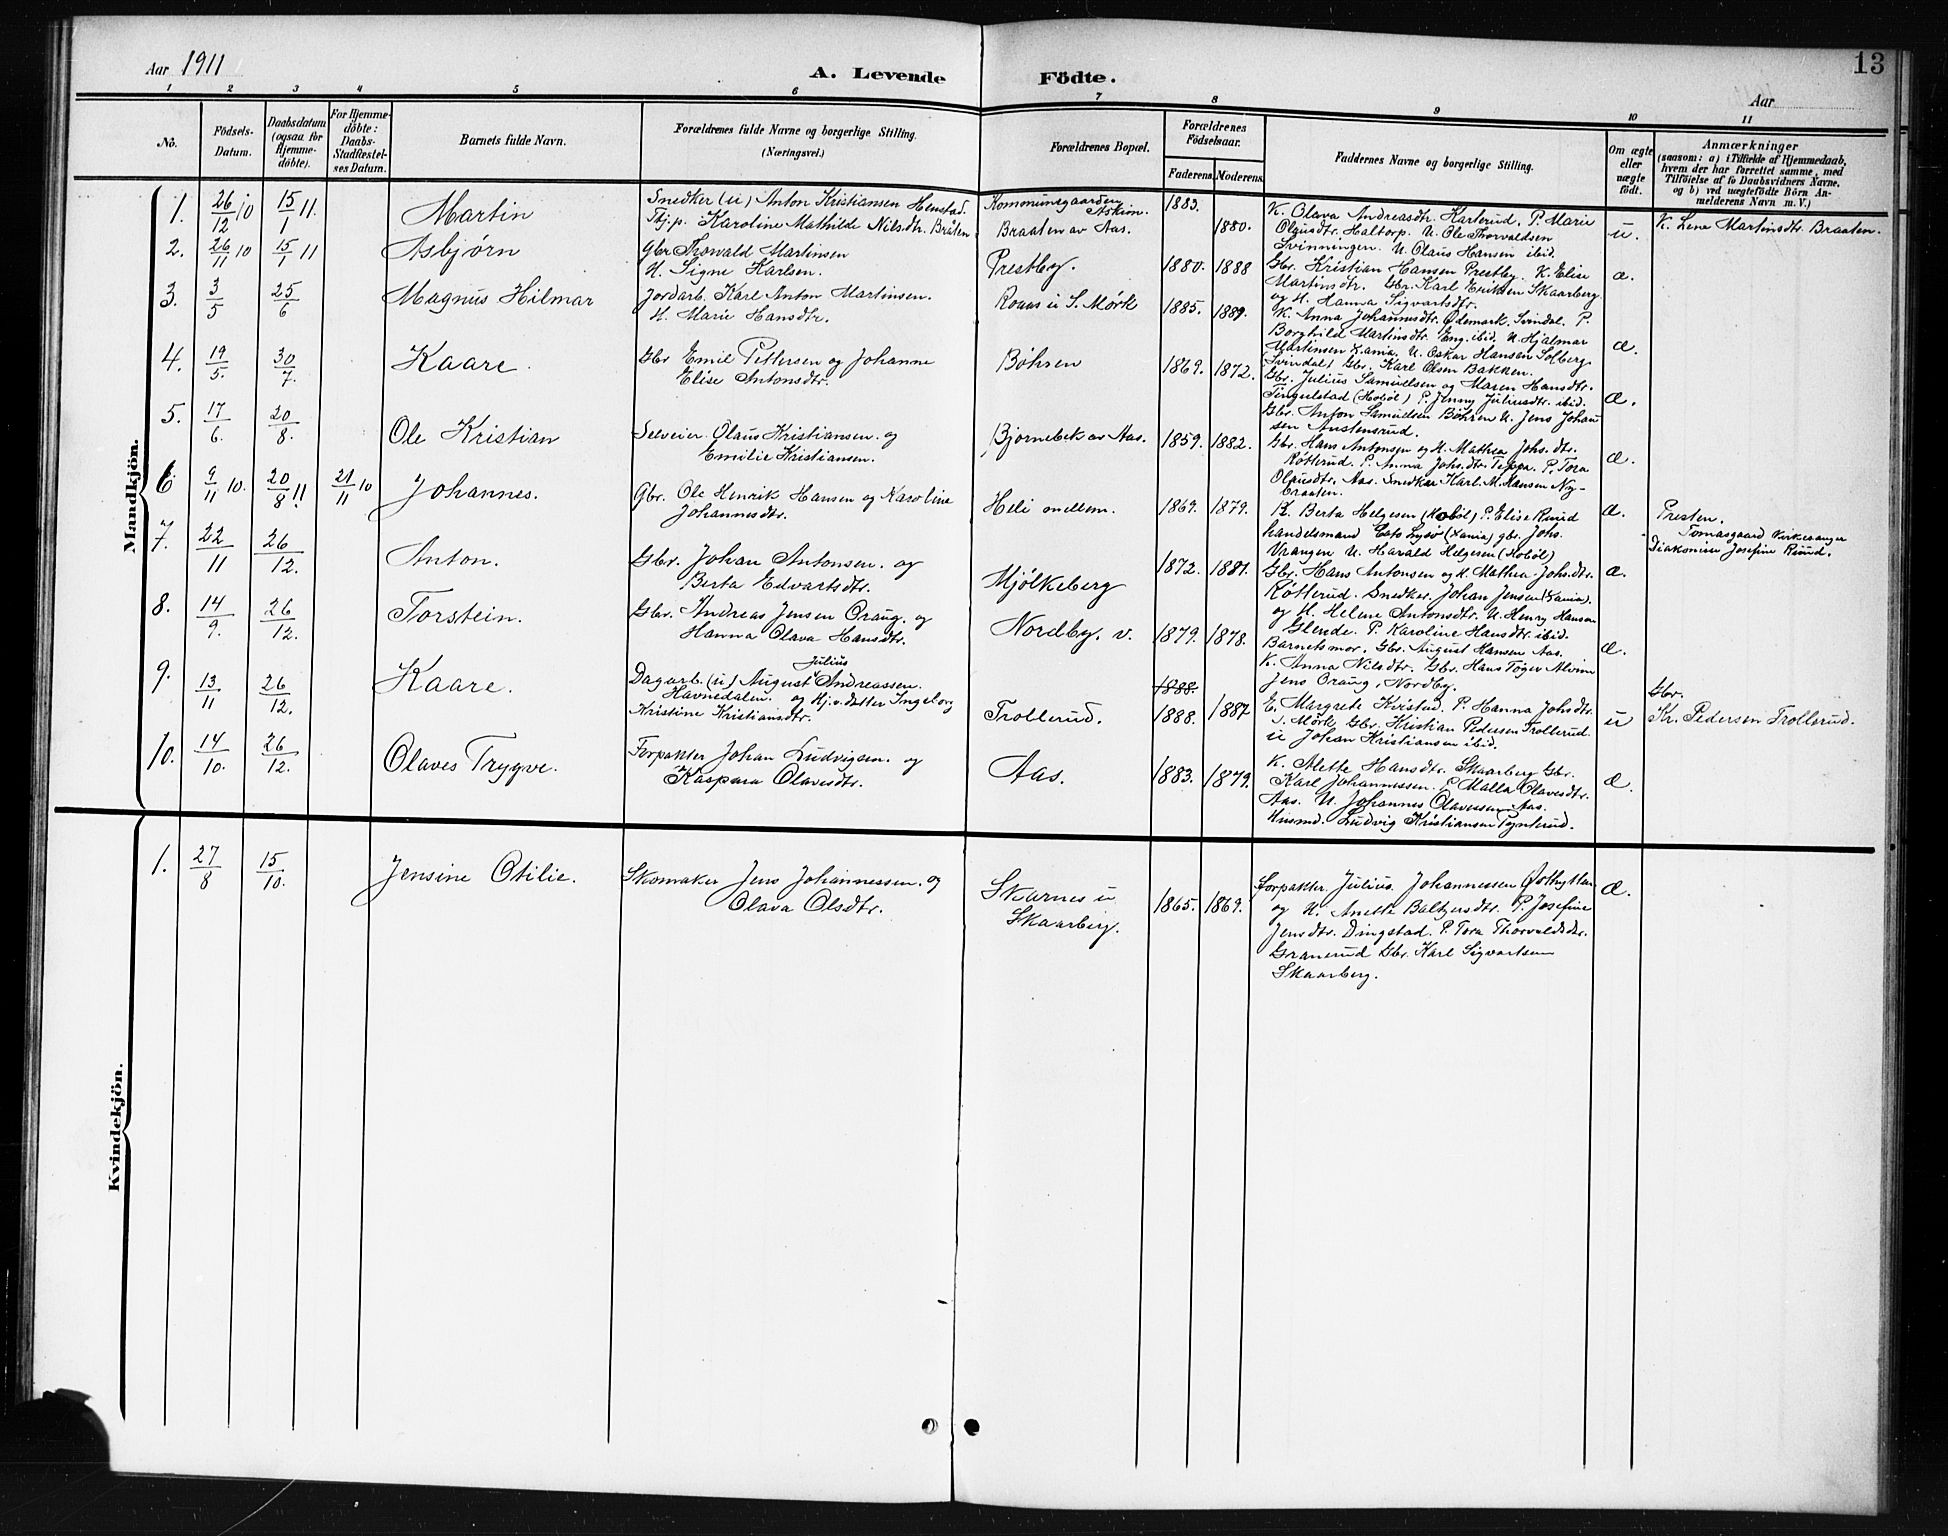 Aar 1911
A. Levende Födte.
13
Aar
1 2 3 4 5 6 7 8 9 10 11
No.
Födsels-
Datum.
Daabsdatum
(ogsaa for
Hjemme-
döbte).
For Hjemme-
döbte:
Daabs-
Stadfæstel-
ses Datum.
Barnets fulde Navn.
Forældrenes fulde Navne og borgerlige Stilling.
(Næringsvei.)
Forældrenes Bopæl.
Forældrenes
Födselsaar.
Faderens. Moderens.
Faddernes Navne og borgerlige Stilling.
Om ægte
eller
uægte
födt.
Anmærkninger
(saasom: a) i Tilfælde af Hjemmedaab,
hvem der har forrettet samme, med
Tilföielse af to Daabsvidners Navne,
og b) ved uægtefödte Börn An-
melderens Navn m. V.)
Mandkjön.
1. 26/12 10 15/1 11. Martin
Snedker (u) Anton Kristiansen Henstad.
Thj.p. Karoline Mathilde Nilsdtr. Bråten
Kommunsgaarden
Askim.
Braaten av Aas.
1883. 1880.
K. Olava Andreasdtr. Karterud. P. Marie
Olausdtr. Haltorp. U. Ole Thorvaldsen
Svinningen. U. Olaus Hansen ibid.
u.
K. Lene Martinsdtr. Braaten.
2. 26/11 10 15/1 11 Asbjørn
Gbr Thorvald Martinsen
H. Signe Karlsen.
Prestby.
1880. 1888
Gbr. Kristian Hansen Prestby. K. Elise
Martinsdtr. Gbr. Karl Eriksen Skaarberg
og H. Hanna Sigvartsdtr.
æ.
3. 3/5 25/6 Magnus Hilmar
Jordarb. Karl Anton Martinsen.
H. Marie Hansdtr.
Roaas u S. Mørk
1885. 1889.
K. Anna Johannesdtr. Ødemark, Svindal. P.
Borghild Martinsdtr. Eng. ibid. U. Hjalmar
Martinsen Xania. U. Oskar Hansen Solberg
(Svindal) Gbr. Karl Olsen Bakken.
æ.
4. 19/5. 30/7. Kaare.
Gbr Emil Pettersen og Johanne
Elise Antonsdtr.
Bøhsen
1869. 1872.
Gbr. Julius Samuelsen og Maren Hansdtr.
Tingulstad (Hobøl) P. Jenny Juliusdtr. ibid.
Gbr. Anton Samuelsen Bøhren U. Jens Johan
sen Austensrud.
æ.
5. 17/6. 20/8. Ole Kristian
Selveier. Olaus Kristiansen. og
Emilie Kristiansen.
Bjørnebek av Aas.
1859. 1882.
Gbr. Hans Antonsen og H. Mathea Johs.dtr.
Røtterud. P. Anna Johs.dtr. Teppa. P. Tora
Olausdtr. Aas. Snedker Karl M. Hansen Ny-
braaten.
æ.
6 9/11 10. 20/8 11. 21/11 10 Johannes.
Gbr. Ole Henrik Hansen og Karoline
Johannesdtr.
Heli mellem.
1869. 1879.
K. Berta Helgesen (Hobøl) P. Elise Ruud
handelsmand Lysø (Xania) gbr. Johs.
Vrangen U. Harald Helgesen (Hobøl)
æ.
Presten.
Tomasgaard Kirkesanger
Diakonisse Josefine Ruud.
7. 22/11 26/12. Anton.
Gbr. Johan Antonsen. og
Berta Edvartsdtr.
Mjølkeberg
1872. 1881.
Gbr. Hans Antonsen og H. Mathea Johs.dtr.
Røtterud. Snedker. Johan Jensen (Xania).
og H. Helene Antonsdtr. U. Henry Hansen
Glende. P. Karoline Hansdtr. ibid.
æ.
8. 14/9. 26/12. Torstein.
Gbr. Andreas Jensen Oraug. og
Hanna Olava Hansdtr.
Nordby. v.
1879. 1878.
Barnets mor. Gbr. August Hansen Aas.
K. Anna Nilsdtr. Gbr. Hans Tøger Alvim
Jens Oraug, Nordby.
æ.
9. 13/11 26/12. Kaare.
Julius
Dagarb. (u) August Andreassen.
Havnedalen. og Hj.v. datter Ingeborg
Kristine Kristiansdtr.
Trollerud.
1888.
1888. 1887
E. Margrete Kvistad. P. Hanna Johsdtr.
S. Mørk Gbr. Kristian Pedersen Trollerud.
U Johan Kristiansen ibid.
u
Gbr.
Kr. Pedersen Trollerud.
10. 14/10. 26/12. Olaves Trygve.
Forpakter Johan Ludvigsen. og
Kaspara Olavesdtr.
Aas.
1883. 1879.
K. Alette Hansdtr. Skaarberg Gbr.
Karl Johannessen. P Malla Olavesdtr.
Aas. U. Johannes Olavessen Aas.
Husmd. Ludvig Kristiansen Pynterud.
æ.
Kvindekjön.
1. 27/8 15/10. Jensine Otilie.
Skomaker Jens Johannessen. og
Olava Olsdtr.
Skarnes u
Skaarberg.
1865. 1869.
Forpakter. Julius. Johannessen
og H. Anette Baltzersdtr. P. Josefine
Jensdtr. Dingstad. P. Tora Thorvaldsdtr.
Granerud Gbr. Karl Sigvartsen
Skaarberg.
æ.